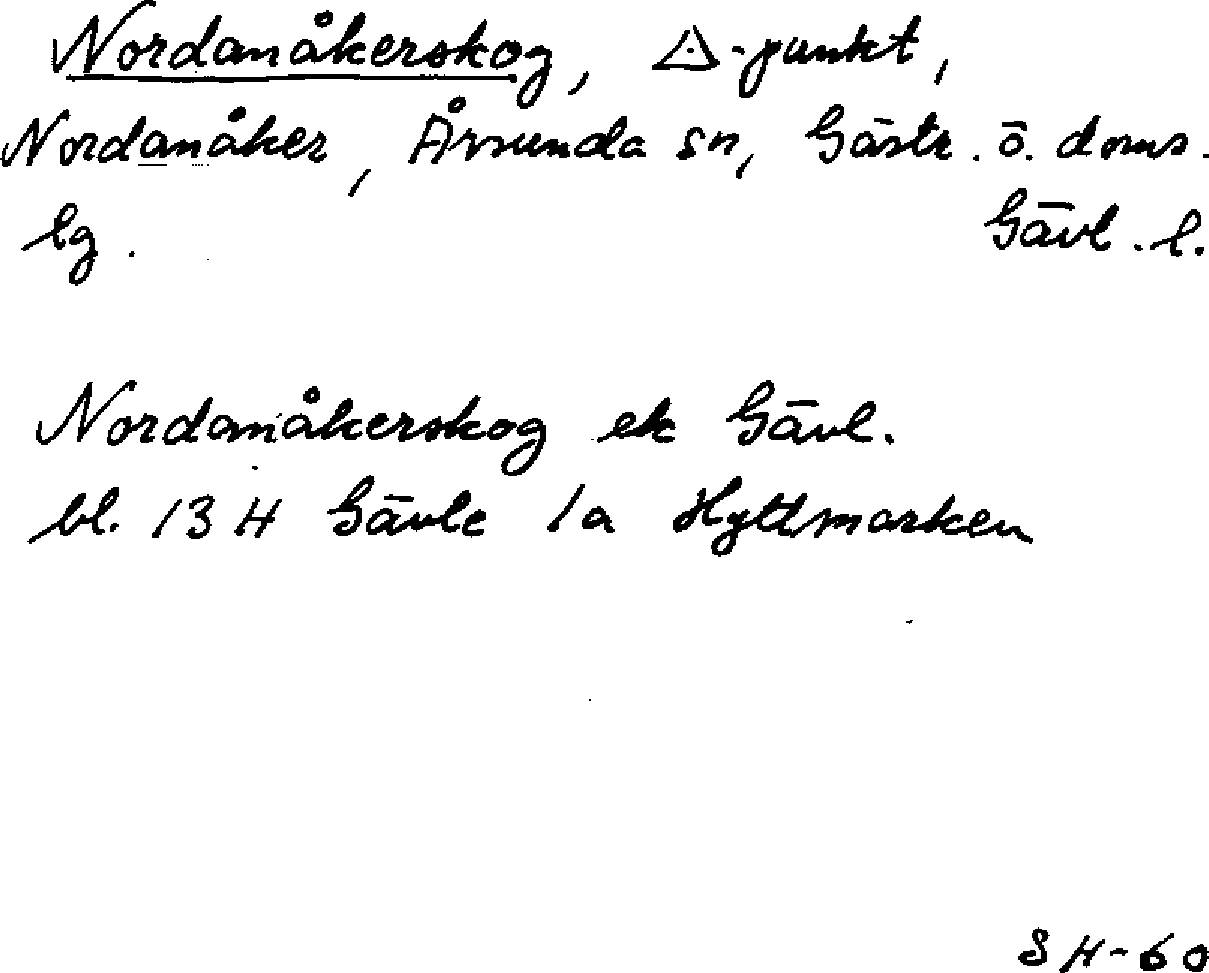 Nordanåkerskog, △-punkt,
Nordanåker, Årsunda sn, Gästr. ö. doms.
lg. Gävl. l.
Nordanåkerskog ek Gävl.
bl. 13 H Gävle 1a Hyttmarken
SH-60